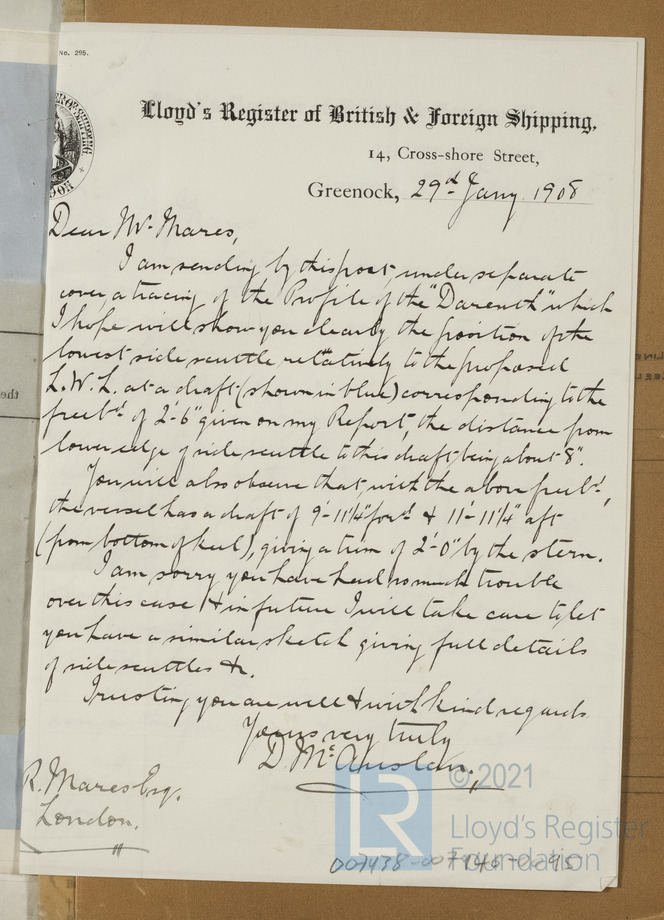 No. 295.
Lloyd's Register of British & Foreign Shipping,
14, Cross-shore Street,
Greenock, 29th Jany 1908
Dear Mr. Mares,
I am sending by this post, under separate
cover a tracing of the Profile of the "Darenth" which
I hope will show you clearly the position of the
lowest side scuttle relatively to the proposed
L.W.L. at a draft (shown in blue) corresponding to the
freebd of 2'-6" given on my Report, the distance from
lower edge of side scuttle to this draft, being about 8".
You will also observe that, with the above freebd,
the vessel has a draft of 9'-11¼" forwd & 11'-11¼" aft
(from bottom of keel), giving a trim of 2'-0" by the stern.
I am sorry you have had so much trouble
over this case & in future I will take care to let
you have a similar sketch giving full details
of side scuttles &c.
Trusting you are well & with kind regards
Yours very truly
D. McAuslan,
R. Mares Esq.
London.
© 2021
LR
Lloyd's Register
Foundation
007438-007440-0095